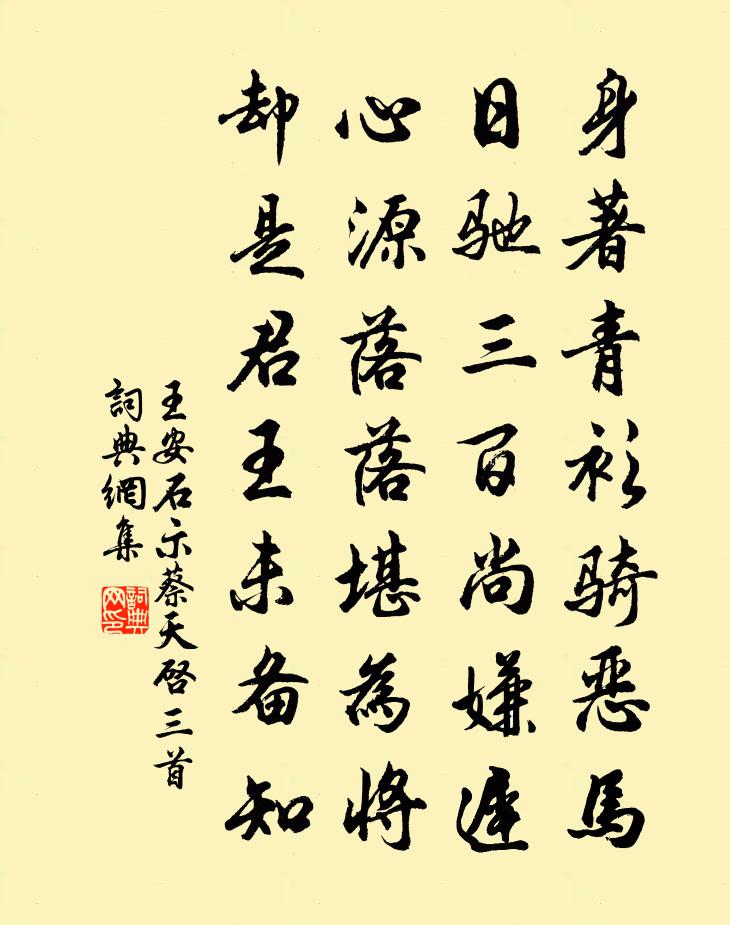 身著青衫騎惡馬
日馳三百尚嫌遲
心源落落堪為將
却是君王未备知
王安石示蔡天啓三首
詞典網集
詞典
网印